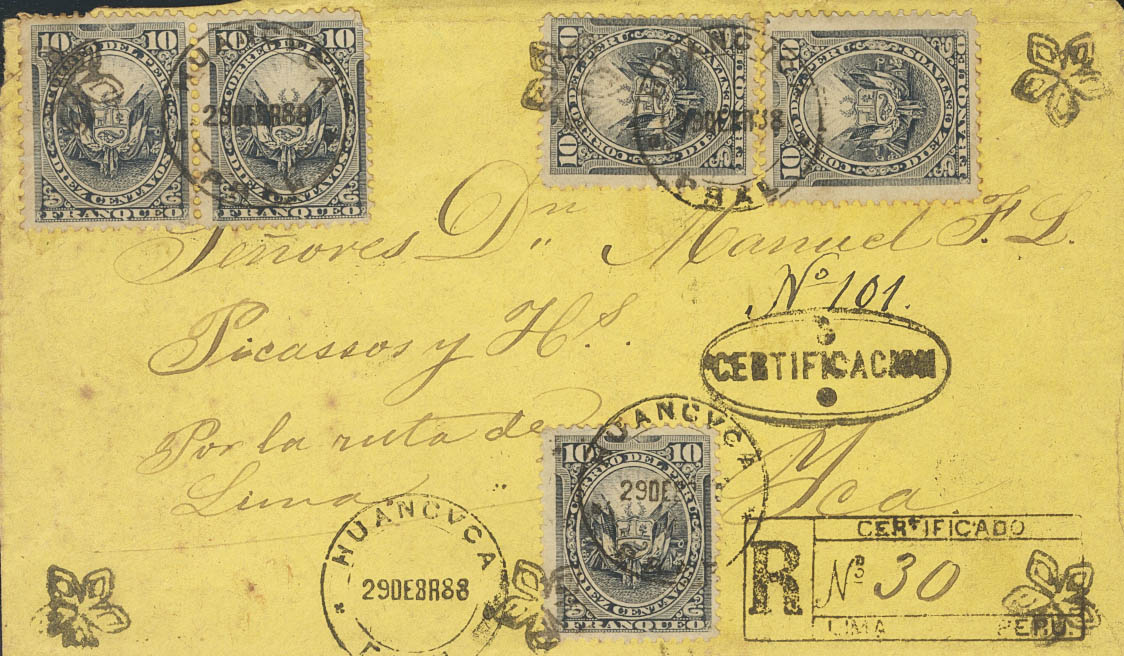 10 10 10 10
CORREO DEL PERU CORREO DEL PERU
HUANCVCA
29DEBR88
PRAL
DIEZ CENTAVOS DIEZ CENTAVOS
FRANQUEO FRANQUEO
10 10
CORREO DEL PERU
HUANCVCA
29DEBR88
PRAL
10 10
CORREO DEL PERU
Señores Dn Manuel F. L.
Nº 101.
Picassos y Hs.
CERTIFICACION
Por la ruta de
Lima
Yca
HUANCVCA
29DE
10 10
CORREO DEL PERU
DIEZ CENTAVOS
FRANQUEO
HUANCVCA
29DEBR88
R
CERTIFICADO
Nº 30
LIMA PERU.